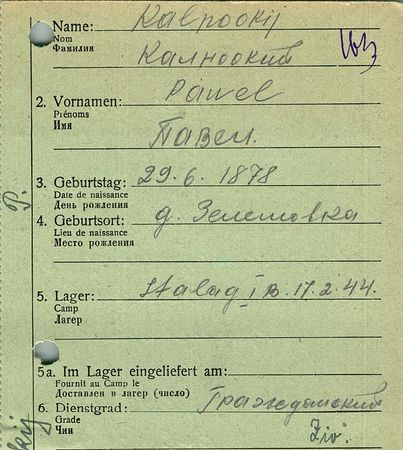 Name: Kalpooky
Nom
Фамилия Калпоокий
2. Vornamen: Pawel
Prénoms
Имя Павел.
3. Geburtstag: 29.6.1878
Date de naissance
День рождения
4. Geburtsort: д. Зелемовка
Lieu de naissance
Место рождения
5. Lager: Stalag I B. 17.2.44.
Camp
Лагер
5a. Im Lager eingeliefert am:
Fournit au Camp le
Доставлен в лагер (число)
6. Dienstgrad: Гражданский
Grade
Чин Ziv.